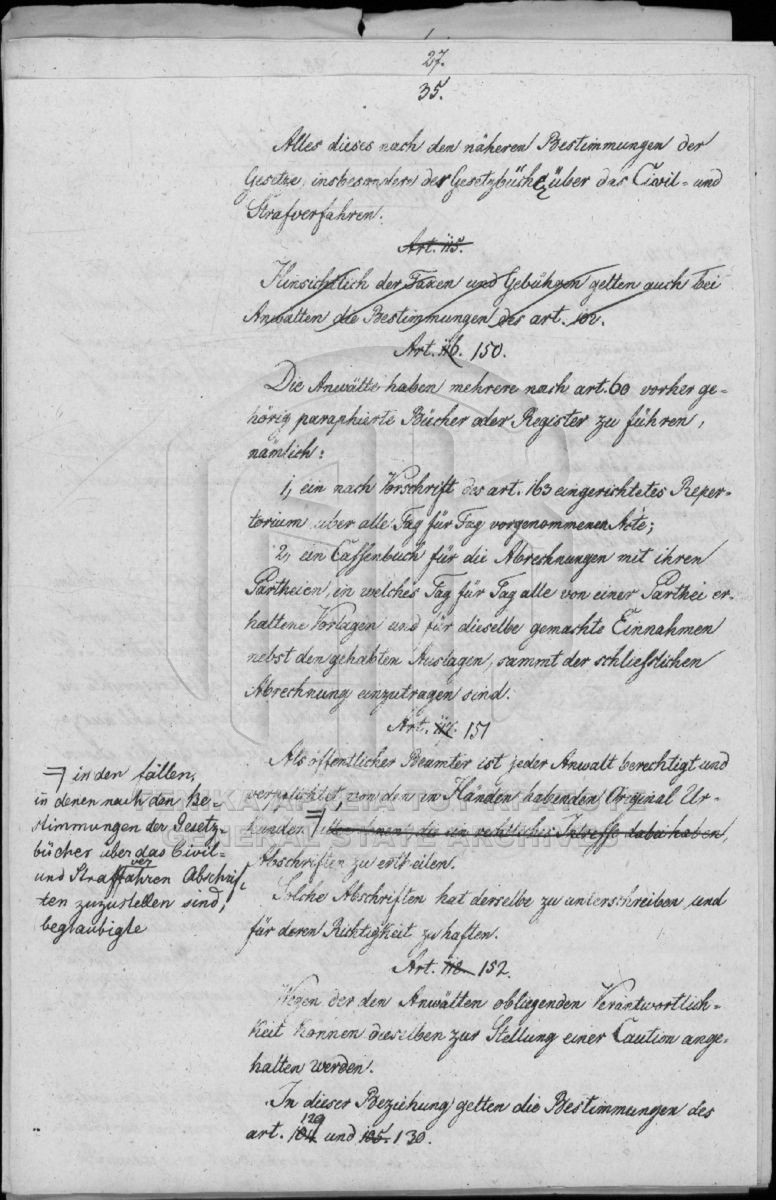 27.
35.
Alles dieses nach den näheren Bestimmungen der
Gesetze, insbesondere der Gesetzbücher über das Civil- und
Strafverfahren.
Art. 115.
Hinsichtlich der Taxen und Gebühren gelten auch bei
Anwälten die Bestimmungen des art. 102.
Art. 116. 150.
Die Anwälte haben mehrere nach art. 60 vorher ge-
hörig paraphierte Bücher oder Register zu führen,
nämlich:
1, ein nach Vorschrift des art. 163 eingerichtetes Reper-
torium über alle Tag für Tag vorgenommenen Acte;
2, ein Cassenbuch für die Abrechnungen mit ihren
Partheien, in welches Tag für Tag alle von einer Parthei er-
haltene Vorlagen und für dieselbe gemachte Einnahmen
nebst den gehabten Auslagen, sammt der schliesslichen
Abrechnung einzutragen sind.
Art. 117. 151
Als öffentlicher Beamter ist jeder Anwalt berechtigt und
verpflichtet, von den in Händen habenden Original Ur-
kunden, die ein rechtliches Interesse dabei haben,
Abschriften zu ertheilen.
in den fällen,
in denen nach den Be-
stimmungen der Gesetz-
bücher über das Civil-
und Strafverfahren Abschrif-
ten zuzustellen sind,
beglaubigte
Solche Abschriften hat derselbe zu unterschreiben und
für deren Richtigkeit zu haften.
Art. 118. 152.
Wegen der den Anwälten obliegenden Verantwortlich-
keit können dieselben zur Stellung einer Caution ange-
halten werden.
In dieser Beziehung gelten die Bestimmungen des
art. 104 129 und 105. 130.
GENERAL STATE ARCHIVES